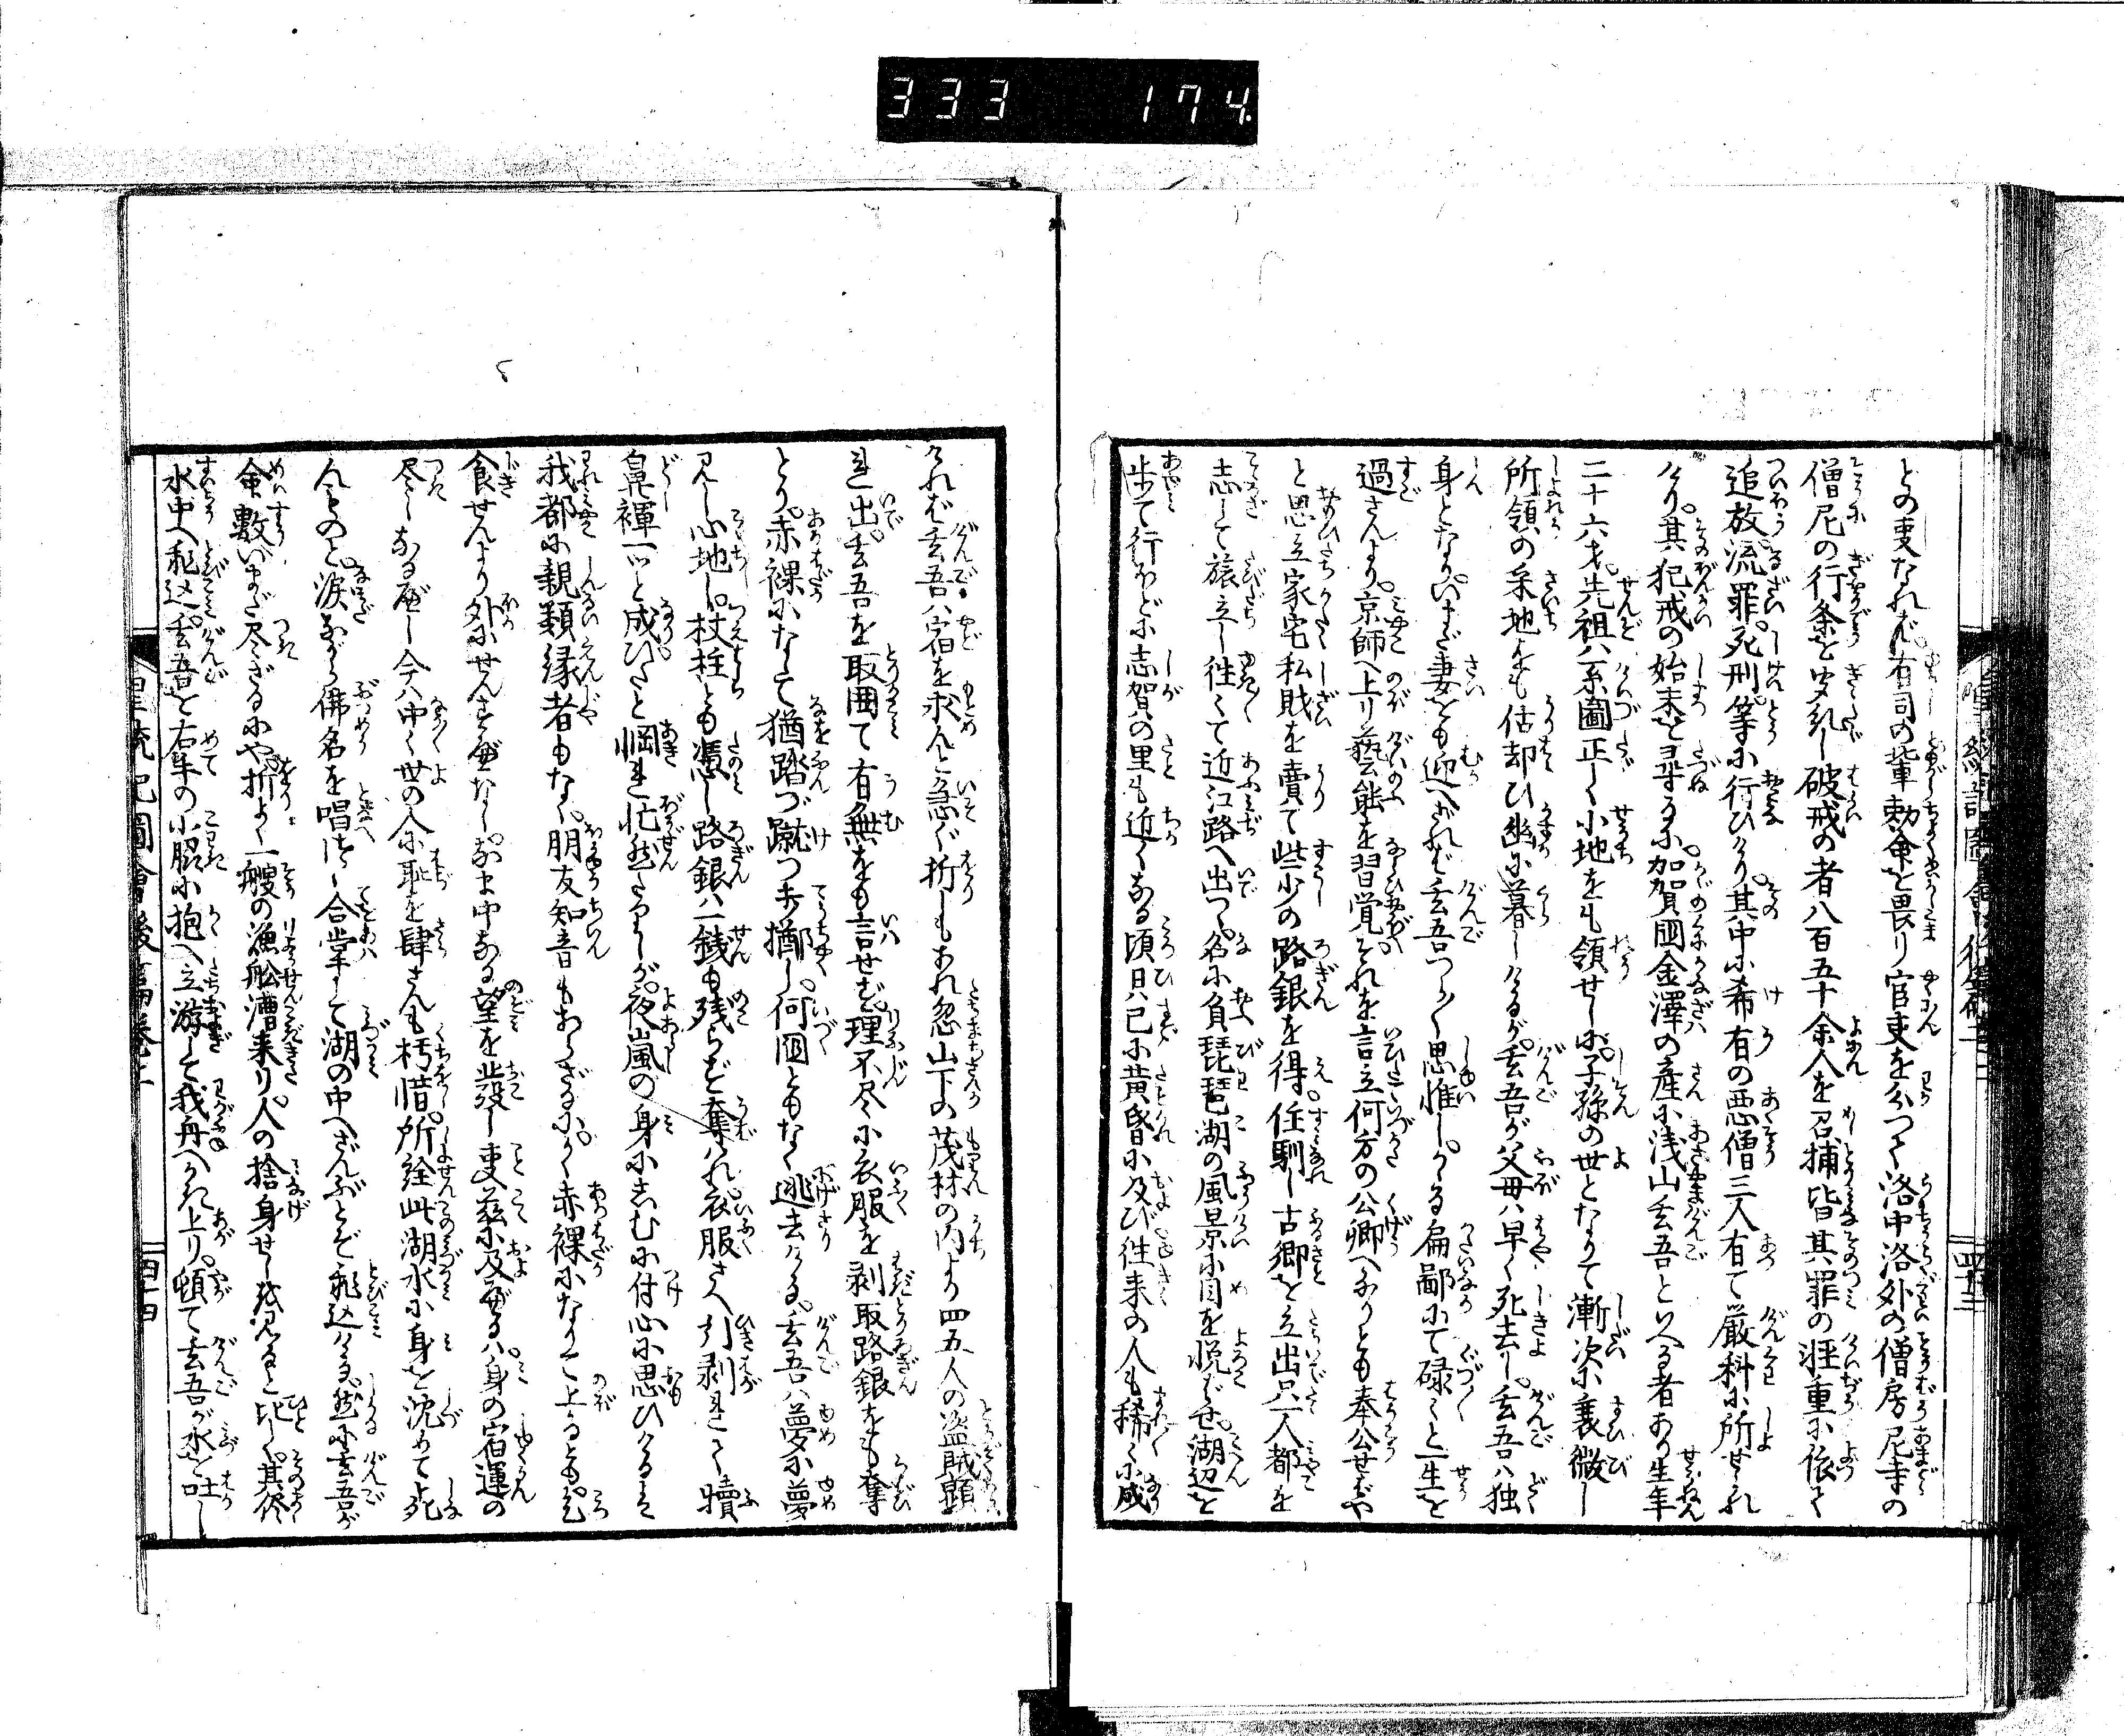 333 174
との事なれば有司の輩勅命を畏り官吏を分つて洛中洛外の僧房尼寺の
僧尼の行条を糺し破戒の者八百五十余人を召捕皆其罪の軽重に依て
追放流罪死刑等に行ひけり其中に希有の悪僧三人有て厳科に所せられ
けり其犯戒の始末を尋るに加賀国金澤の産に浅山玄吾といへる者あり生年
二十六才先祖ハ系圖正しく小地をも領せしに子孫の世となりて漸次に衰微し
所領の采地をも估却ひ幽に暮しけるが玄吾が父母ハ早く死去し玄吾ハ独
身となりいまだ妻をも迎へざれば玄吾つらく思惟しかゝる扁鄙にて碌々と一生を
過さんより京師へ上り藝能を習覚それを言立何方の公卿へなりとも奉公せばや
と思立家宅私財を賣て些少の路銀を得住馴し古郷を立出只一人都を
志して旅立し往々て近江路へ出つゝ名に負琵琶湖の風景に目を悦ばせ湖辺を
歩て行ほどに志賀の里も近くなる頃日ハ已に黄昏に及び往来の人も稀々に成
ければ玄吾ハ宿を求んと急ぐ折しもあれ忽山下の茂林の内より四五人の盗賊顕
れ出玄吾を取囲て有無をも言せず理不尽に衣服を剥取路銀をも奪
とり赤裸になして猶踏づ蹴つ打擲し何国ともなく逃去ける玄吾ハ夢に夢
見し心地し杖柱とも憑し路銀ハ一銭も残らず奪ハれ衣服さへ引剥れて犢
鼻褌一ツと成ひたと惘れ忙然たりしが夜嵐の身にしむに付心に思ひけるハ
我都に親類縁者もなく朋友知音もあらざるにかく赤裸になりて上るとも乞
食せんより外にせんすべなしなま中なる望を發し事茲に及べるハ身の宿運の
尽しなるべし今ハ中々世の人に恥を肆さんも朽惜所詮此湖水に身を沈めて死
んものと涙ながら佛名を唱つゝ合掌して湖の中へざんぶとぞ飛込ける然に玄吾が
命數いまだ尽ざるにや折よく一艘の漁舩漕来り人の捨身せしを見ると斉しく其侭
水中へ飛込玄吾を右手の小脇に抱へ立游して我舟へかき上り頓て玄吾が水を吐し
聖統記圖會後篇巻
四十四